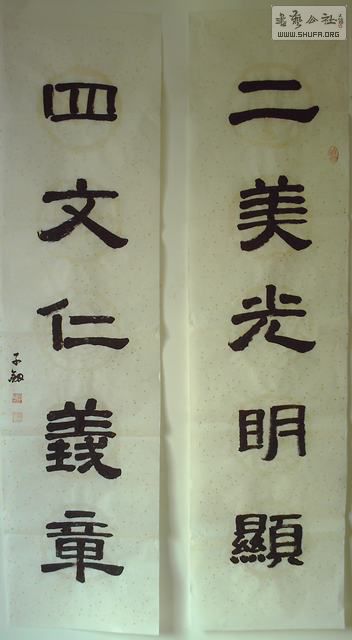 二美光明顯
四文仁義章
子劔
書藝公社
WWW.SHUFA.ORG